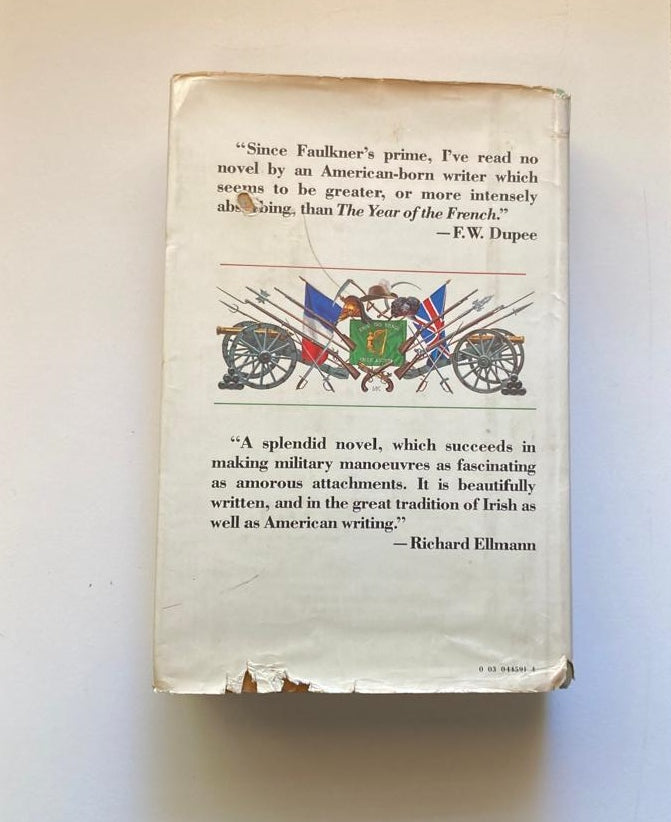 “Since Faulkner’s prime, I’ve read no
novel by an American-born writer which
seems to be greater, or more intensely
than The Year of the French.”
—F.W. Dupee
“A splendid novel, which succeeds in
making military manoeuvres as fascinating
as amorous attachments. It is beautifully
written, and in the great tradition of Irish as
well as American writing.”
—Richard Ellmann
0 03 044591